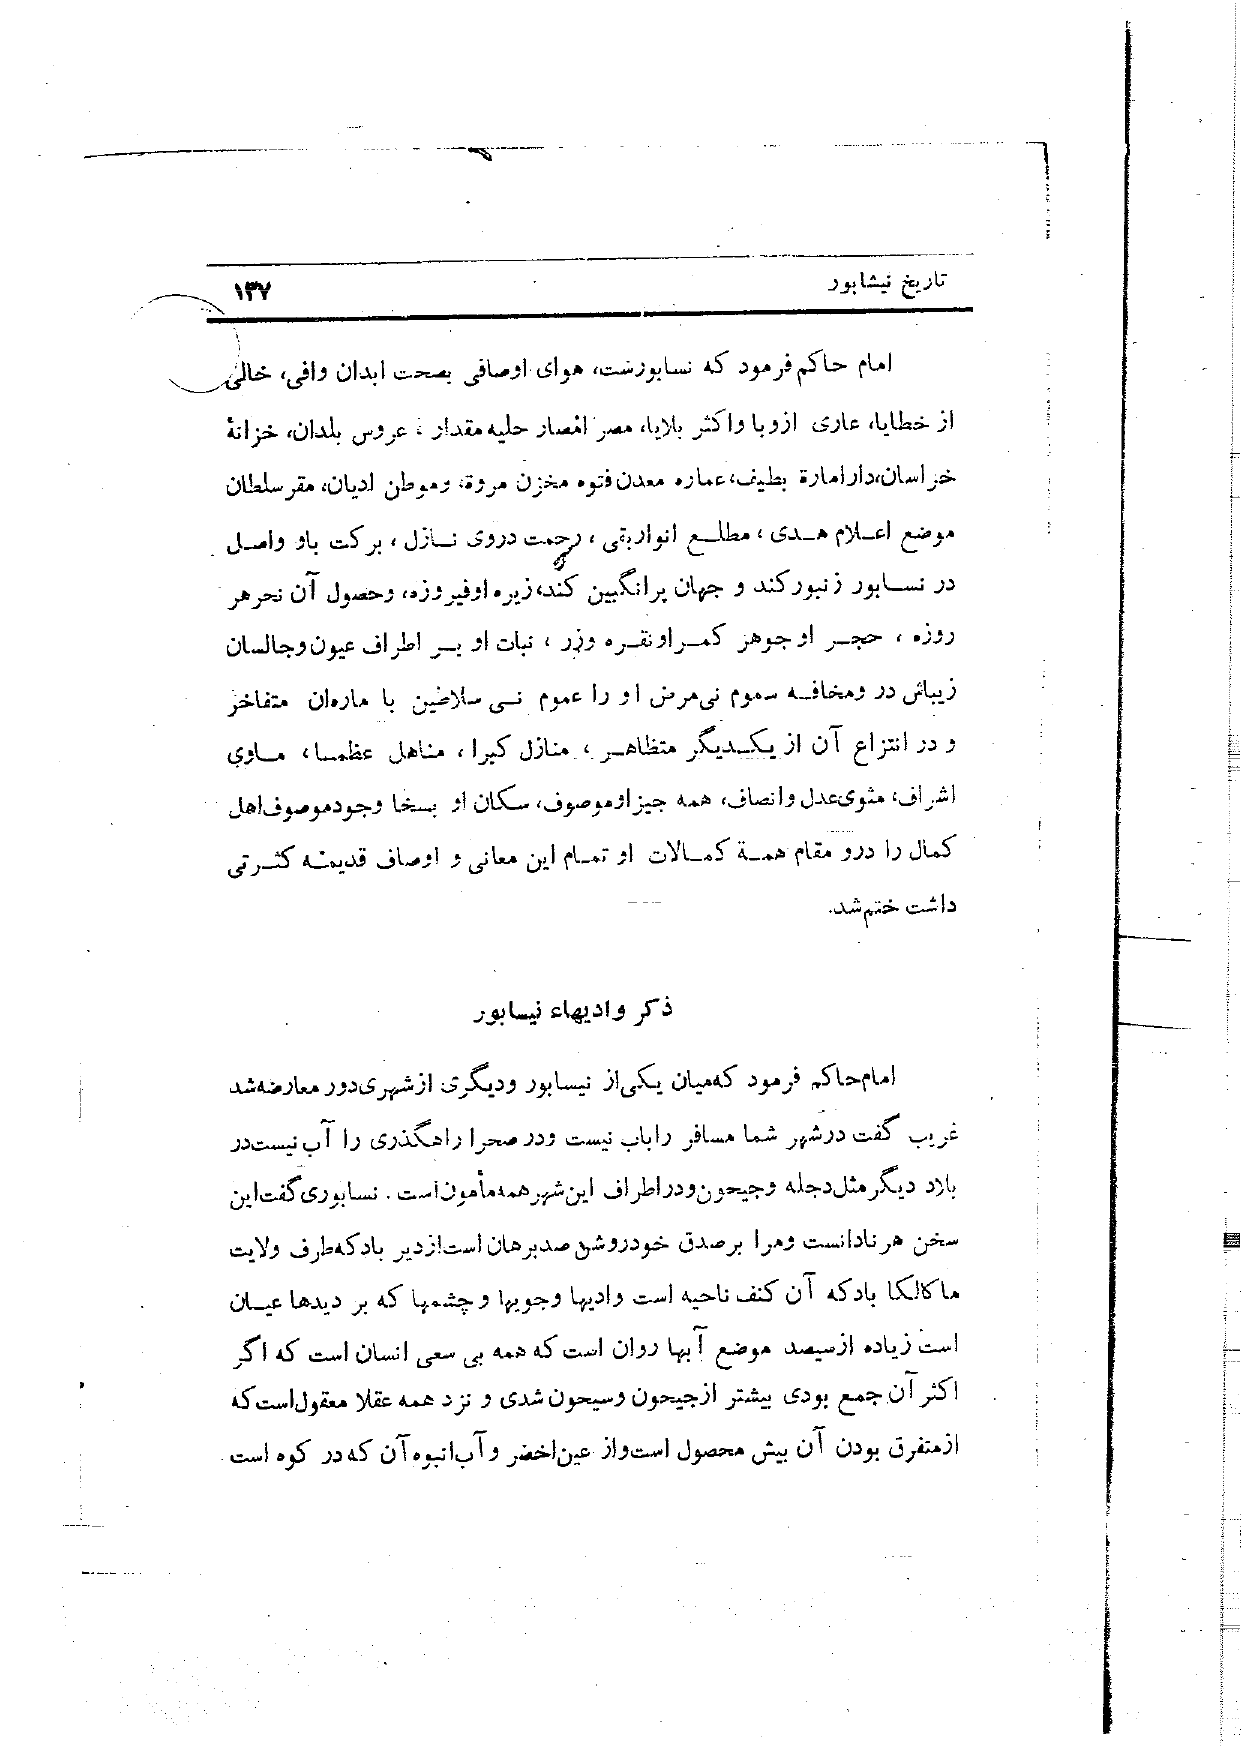 تاریخ نیشابور
۱۳۷
امام حاکم فرمود که نسابورشت، هوای اوصافی بصحت ابدان وافی، خالی
از خطایا، عاری ازوبا واکثر بلایا، مصر انصار حلیه مقدار، عروس بلدان، خزانۀ
خراسان،دارامارة بطیف،عماره معدن فتوه مخزن مروة، وموطن ادیان، مقرسلطان
موضع اعلام هدی، مطلع انواربقی، رحمت دروی نازل، برکت باو واصل
در نسابور زنبور کند و جهان پرانگبین کند، زیره اوفیروزه، وحصول آن نحرهر
روزه، حجر او جوهر کمراونقره وزر، نبات او بر اطراف عیون وجالسان
زیباش در ومخافه سموم نی‌مرض او را عموم نی سلاطین با مارمان متفاخر
و در انتزاع آن از یکدیگر متظاهر، منازل کبرا، مناهل عظما، ماوی
اشراف، مثوی‌عدل وانصاف، همه چیزاوموصوف، سکان او بسخا وجودموصوف‌اهل
کمال را درو مقام همة کمالات او تمام این معانی و اوصاف قدیمته کثرتی
داشت ختم‌شد.
ذکر وادیهاء نیسابور
امام‌حاکم فرمود که‌میان یکی‌از نیسابور ودیگری ازشهری‌دور معارضه‌شد
غریب گفت درشهر شما مسافر راباب نیست ودر صحرا راهگذری را آب نیست‌در
بلاد دیگر مثل‌دجله وجیحون‌ودراطراف این‌شهرهمه‌مأمون‌است. نسابوری‌گفت‌این
سخن هرنادانست ومرا برصدق خودروشن صدبرهان است‌ازدیر بادکه‌طرف ولایت
ماکالکا بادکه آن کنف ناحیه است وادیها وجویها وچشمها که بر دیدها عیان
است زیاده ازسیصد موضع آبها روان است که همه بی سعی انسان است که اگر
اکثرآن جمع بودی بیشتر ازجیحون وسیحون شدی و نزد همه عقلا معقول‌است‌که
ازمتفرق بودن آن بیش محصول است‌واز عین‌اخضر وآب‌انبوه‌آن که در کوه است